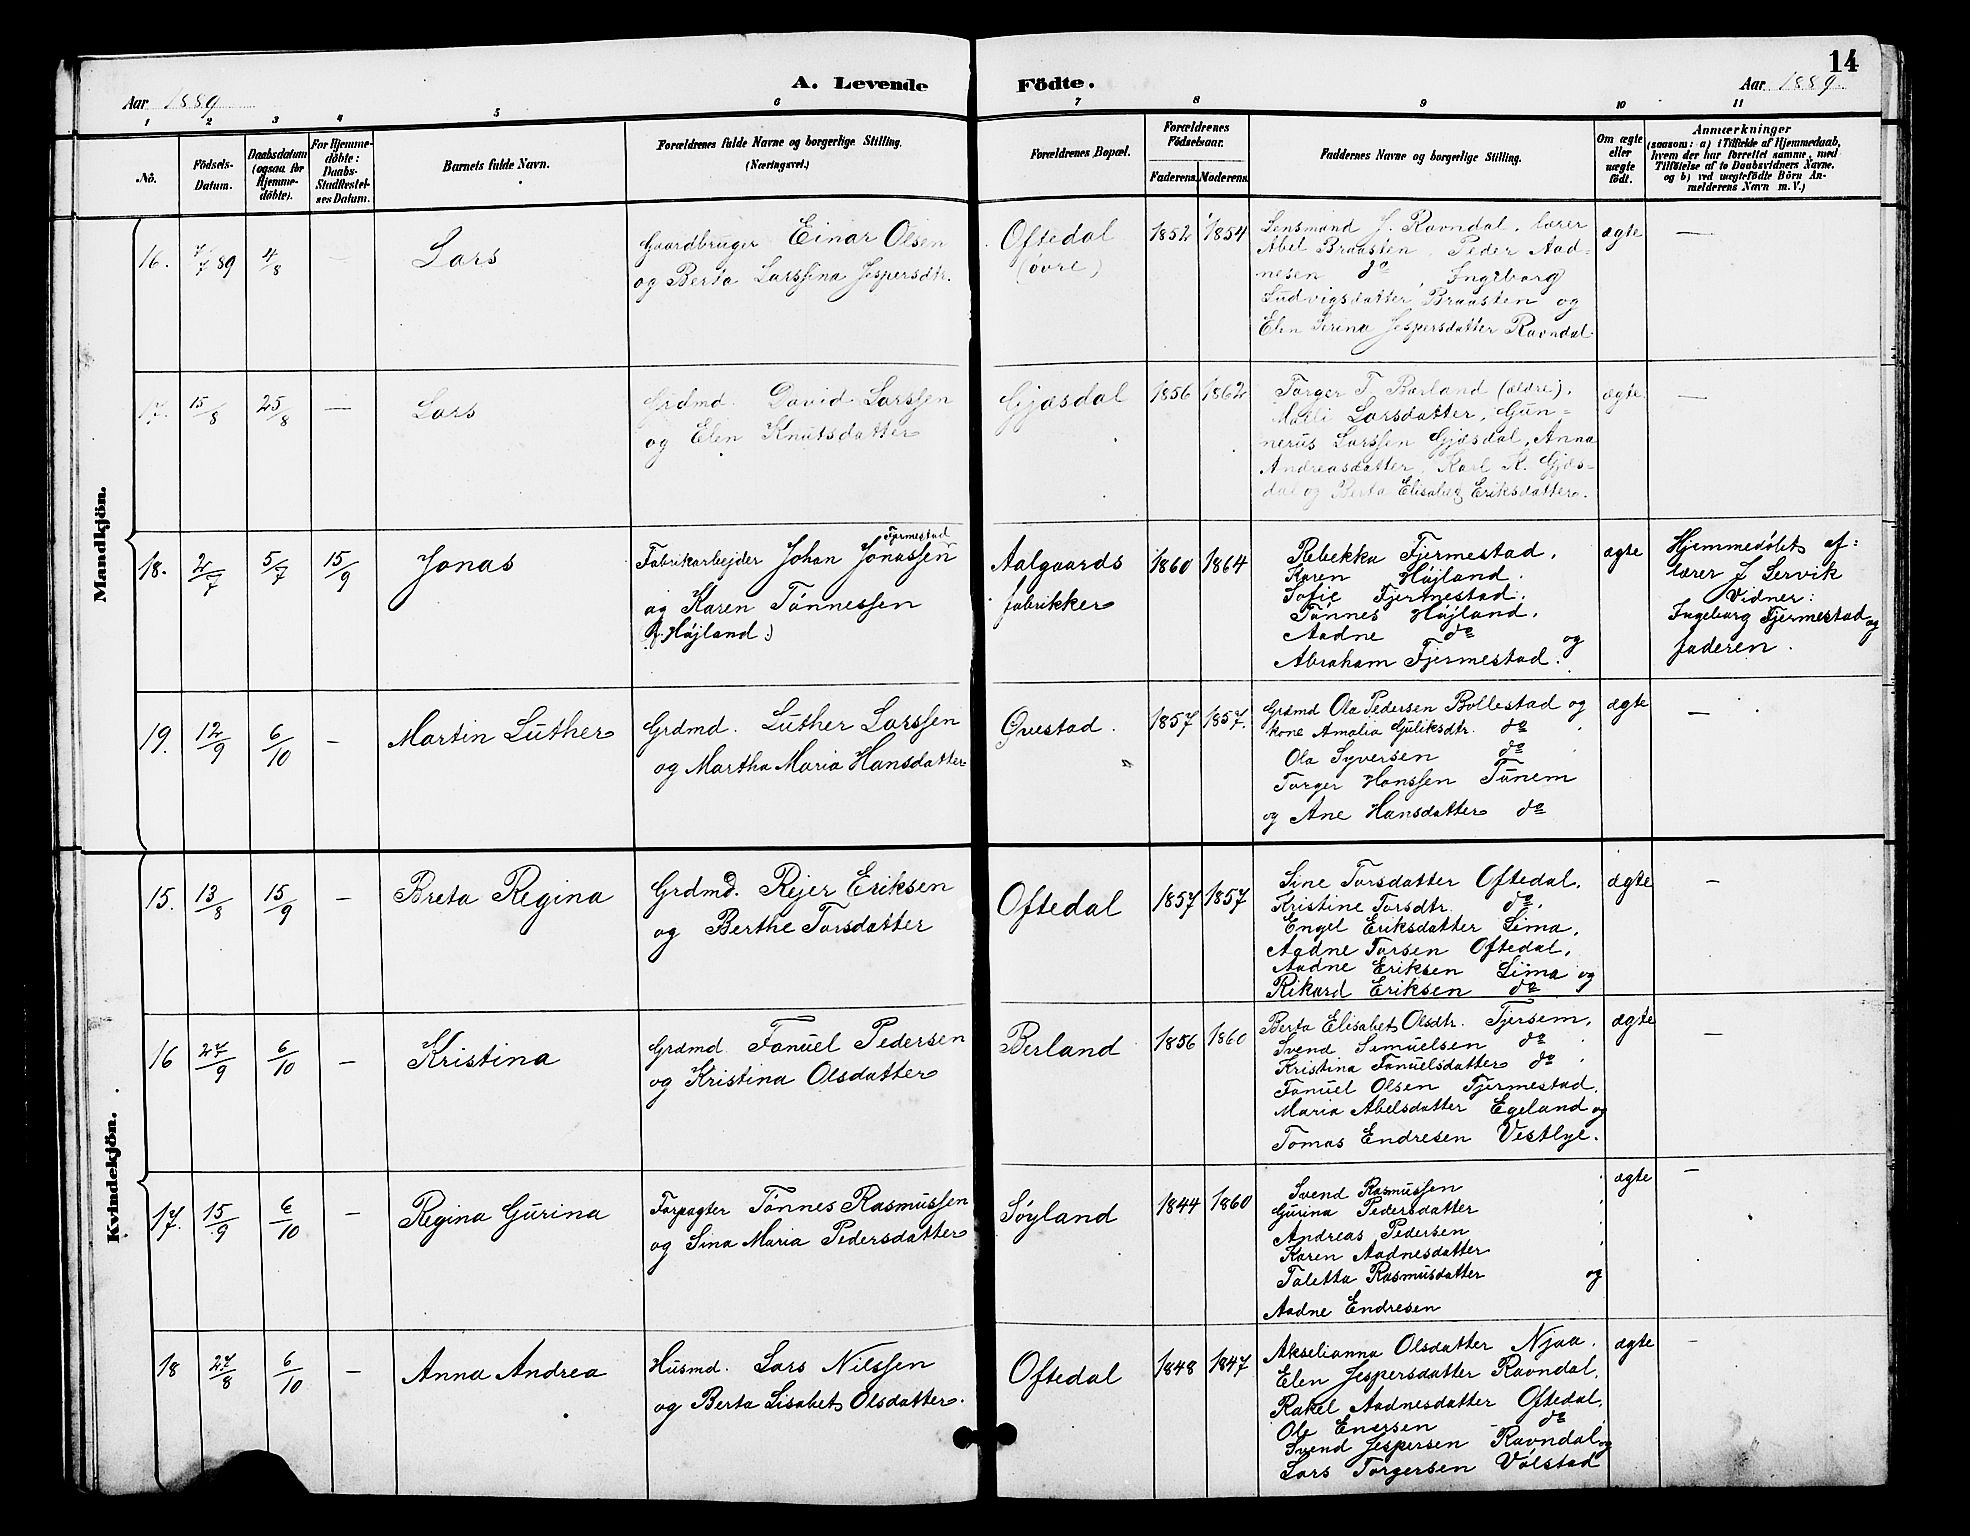 14
A. Levende Födte.
Aar 1889
Aar 1889.
1 2 3 4 5 6 7 8 9 10 11
No.
Födsels-
Datum.
Daabsdatum
(ogsaa for
Hjemme-
döbte).
For Hjemme-
döbte:
Daabs-
Stadfestel-
ses Datum.
Barnets fulde Navn.
Forældrenes fulde Navne og borgerlige Stilling.
(Næringsvei.)
Forældrenes Bopæl.
Forældrenes
Födselsaar.
Faderens. Moderens.
Faddernes Navne og borgerlige Stilling.
Om ægte
eller
uægte
födt.
Anmærkninger
(saasom: a) i Tilfælde af Hjemmedaab,
hvem der har forrettet samme, med
Tilföielse af to Daabsvidners Navne.
og b) ved uægtefödte Börn An-
melderens Navn m. V.)
Mandkjön.
16. 7/7 89 4/8 —
Lars
Gaardbruger Einar Olsen
og Berta Larssina Jespersdtr.
Oftedal
(övre)
1852 1854
Lensmand J. Ravndal, lærer
Abel Braasten, Peder Aad-
nesen do, Ingeborg
Ludvigsdatter Braasten og
Elen Serina Jespersdatter Ravndal.
ægte —
17. 15/8 25/8 —
Lars
Grdmd. David Larssen
og Elen Knutsdatter
Gjæsdal
1856 1862
Torger T. Barland (ældre),
Malli Larsdatter, Gun-
nerus Larssen Gjæsdal, Anna
Andreasdatter, Karl K. Gjæs-
dal og Berta Elisabet Eriksdatter.
ægte. —
18. 2/7 5/7 15/9
Jonas
Fjermestad
Fabrikarbejder Johan Jonassen
og Karen Tönnessen
(f. Höjland.)
Aalgaards
fabrikker
1860 1864
Rebekka Fjermestad,
Karen Höjland.
Sofie Fjermestad.
Tönnes Höjland,
Aadne do og
Abraham Fjermestad.
ægte
Hjemmedöbt af:
lærer J Servik
Vidner:
Ingeborg Fjermestad og
faderen.
19. 12/9 6/10 —
Martin Luther
Grdmd. Luther Larssen
og Martha Maria Hansdatter
Qvestad.
1857 1857.
Grdmd Ola Pedersen Bollestad og
kone Amalia Guliksdtr. do
Ola Syversen do
Torger Hanssen Tunem
og Ane Hansdatter do
ægte —
Kvindekjön.
15. 13/8 15/9 —
Breta Regina
Grdmd. Rejer Eriksen
og Berthe Torsdatter
Oftedal
1857 1857
Sine Torsdatter Oftedal,
Kristine Torsdtr. do,
Engel Eriksdatter Lima,
Aadne Torsen Oftedal,
Aadne Eriksen Lima og
Rikard Eriksen do
ægte —
16 27/9 6/10 —
Kristina
Grdmd. Fanuel Pedersen
og Kristina Olsdatter
Berland
1856 1860
Berta Elisabet Olsdtr. Tjersem,
Svend Samuelsen do
Kristina Fanuelsdatter do
Fanuel Olsen Fjermestad,
Maria Abelsdatter Egeland og
Tomas Endresen Vestlye.
ægte —
17. 15/9 6/10 —
Regina Gurina
Forpagter Tönnes Rasmussen
og Sina Maria Pedersdatter
Söyland
1844 1860
Svend Rasmussen
Gurina Pedersdatter
Andreas Pedersen
Karen Aadnesdatter
Taletta Rasmusdatter og
Aadne Endresen
ægte —
18 27/8 6/10 —
Anna Andrea
Husmd. Lars Nilssen
og Berta Lisabet Olsdatter.
Oftedal
1848 1847
Akselianna Olsdatter Njaa.
Elen Jespersdatter Ravndal,
Rakel Aadnesdatter Oftedal,
Ole Enersen do
Svend Jespersen Ravndal og
Lars Torgersen Völstad
ægte —